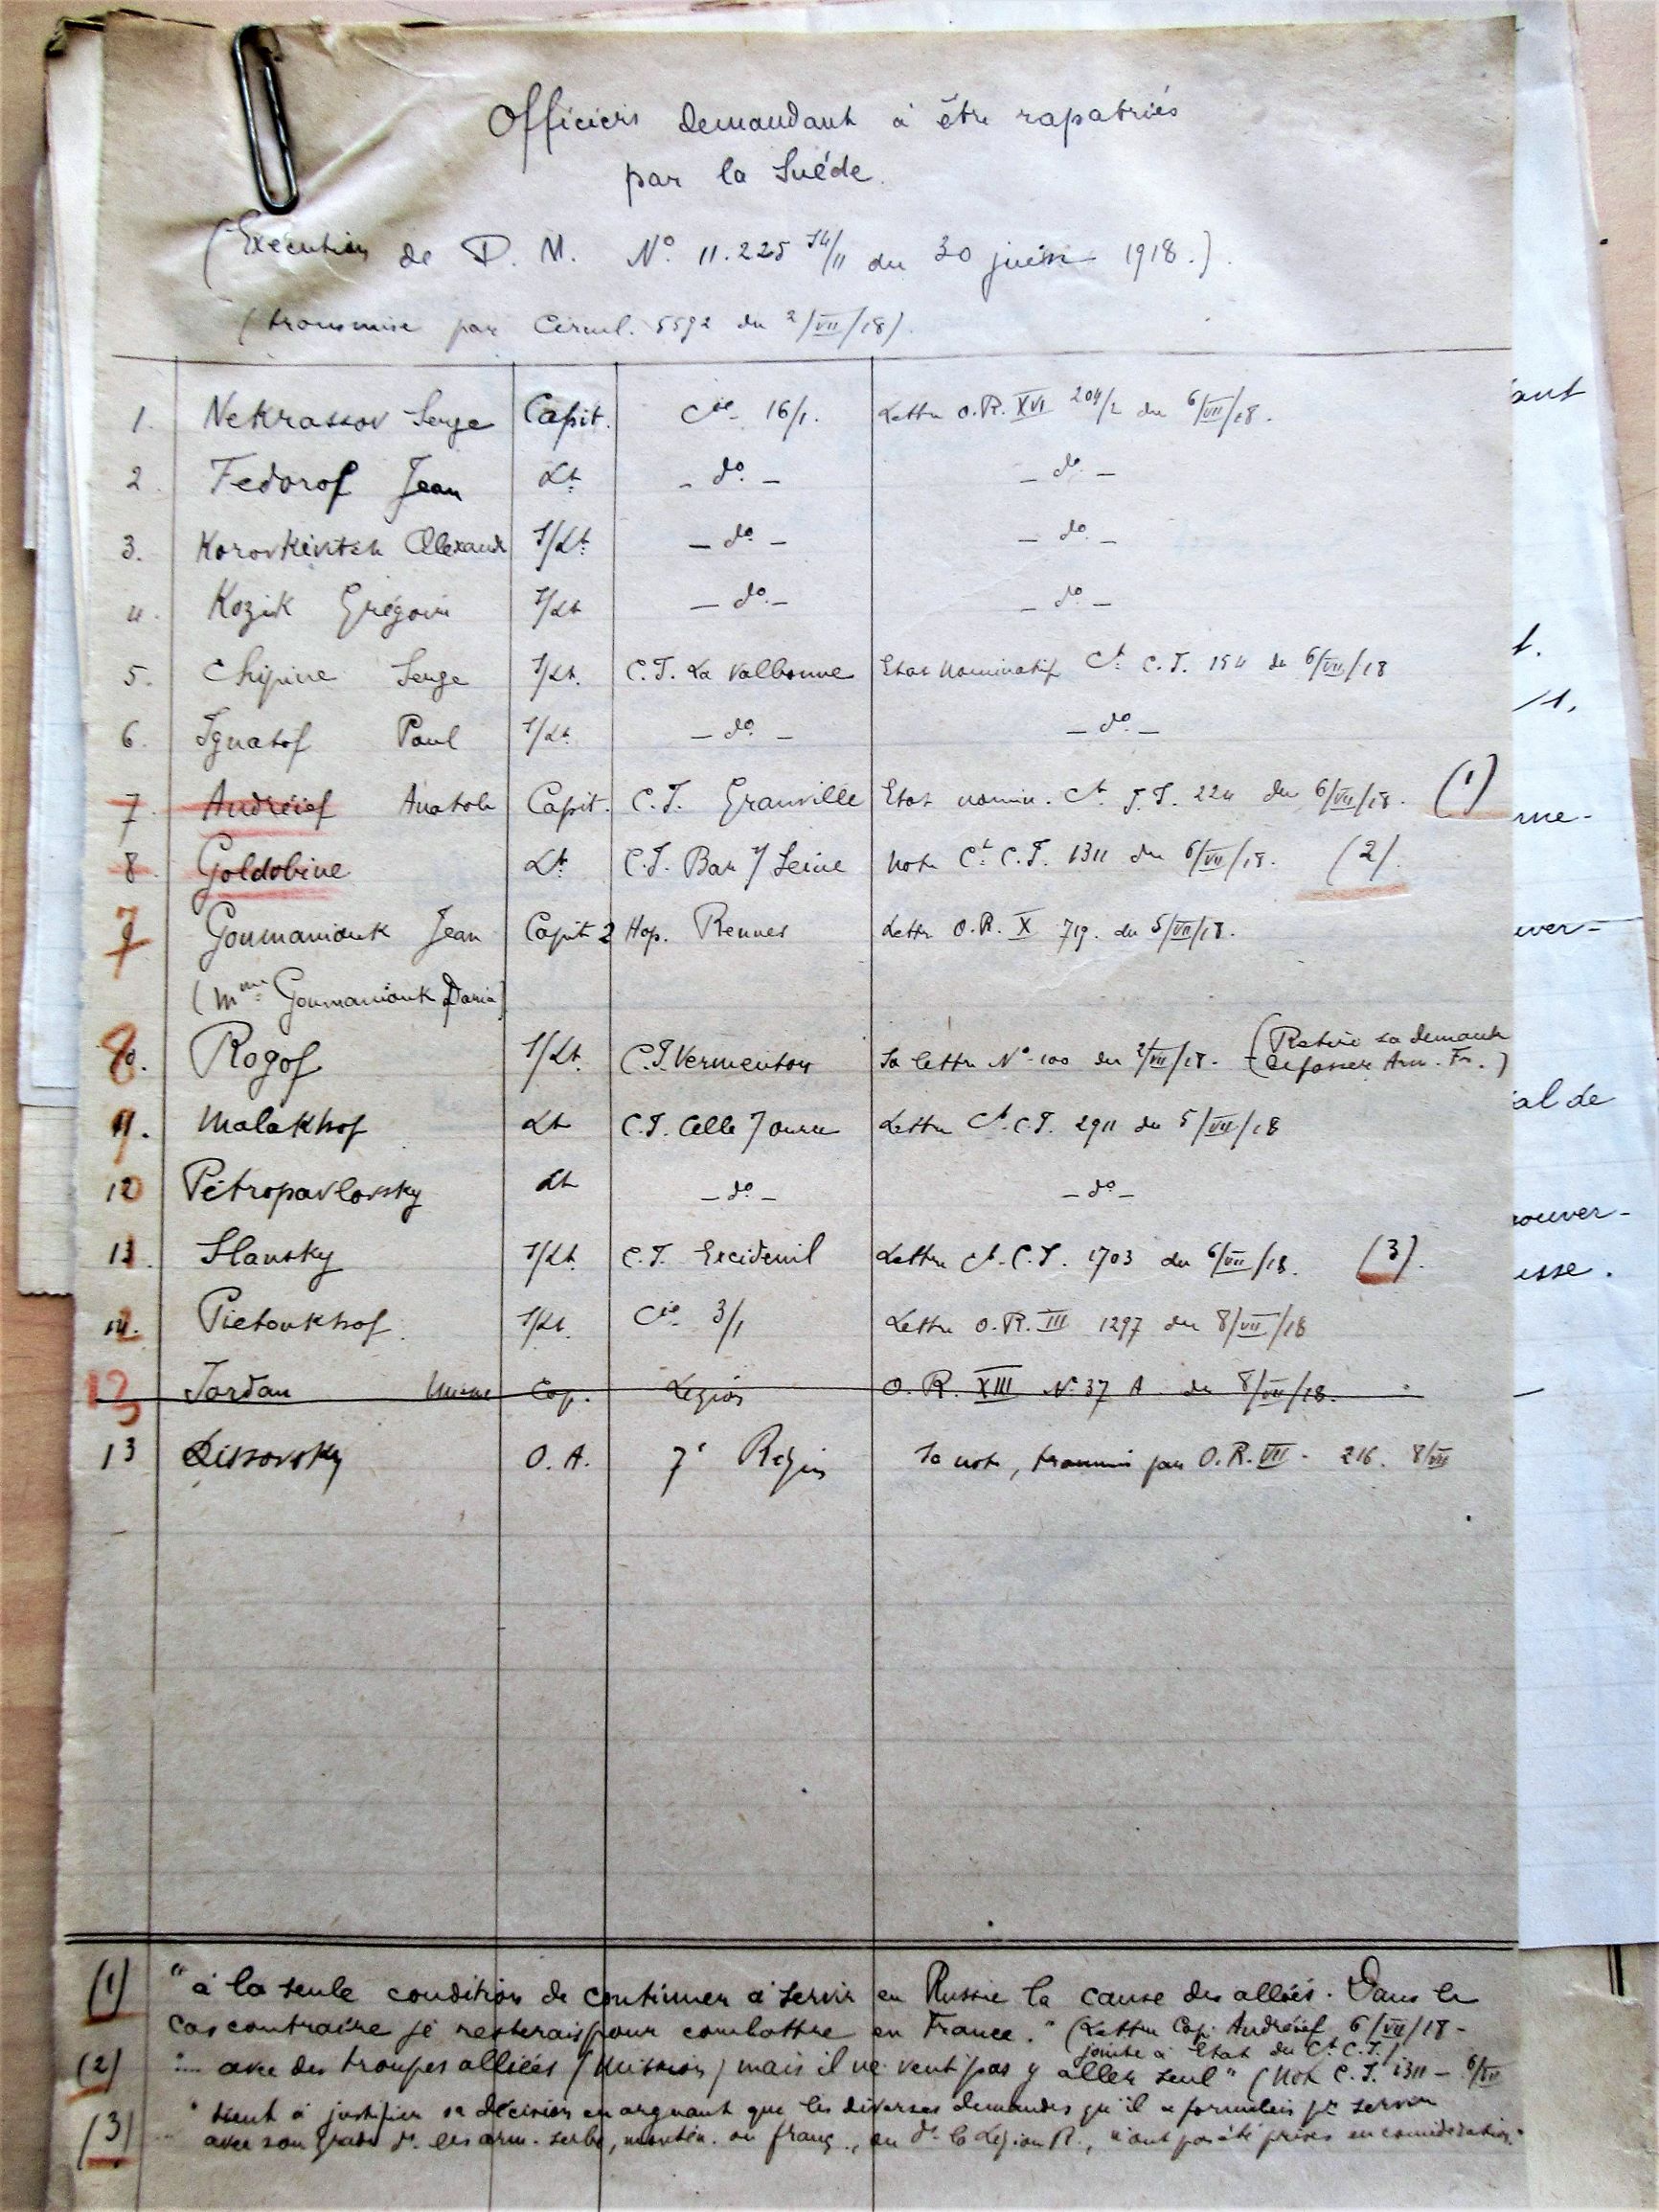 Officiers demandant à être rapatriés
par la Suède.
(Exécution de D. M. No 11.225 S4/11 du 30 juin 1918.)
(transmise par Circul. 5592 du 2/VII/18).
1. Nekrassov Serge Capit. Cie 16/1. Lettre O.R. XVI 204/2 du 6/VII/18.
2. Fedorof Jean Lt. - do - - do -
3. Korovkévitch Alexandr S/Lt. - do - - do -
4. Kozik Grégoire S/Lt - do - - do -
5. Chipine Serge S/Lt. C.T. La Valbonne Etat nominatif Ct C.T. 154 du 6/VII/18
6. Ignatof Paul S/Lt. - do - - do -
7. Andréief Anatole Capit. C.T. Granville Etat nomin. Ct T.T. 224 du 6/VII/18. (1)
8. Goldobine Lt. C.T. Bar s/ Seine Note Ct C.T. 1311 du 6/VII/18. (2).
7 Goumaniouk Jean Capit 2 Hop. Rennes Lettr. O.R. X 719. du 5/VII/18.
(Mme Goumaniouk Daria)
8. Rogof S/Lt. C.T. Vermenton Sa lettre No 100 du 2/VII/18. (Retiré sa demande
Arm. Fr.)
9. Malakhof Lt C.T. Celle s/ Ource Lettre Ct. C.T. 2911 du 5/VII/18
10 Pétropavlovsky Lt - do - - do -
11. Slavsky S/Lt. C.T. Excideuil Lettre Ct. C.T. 1703 du 6/VII/18. (3).
12. Pietoukhof. S/Lt. Cie 3/1 Lettre O.R. III 1297 du 8/VII/18
13 Jordan Cap. Légion O.R. XIII No 37 A du 8/VII/18.
13 Lissovsky O.A. 7e Région Sa note, transmis par O.R. VII - 216. 8/VII
(1) "à la seule condition de continuer à servir en Russie la cause des alliés. Dans le
cas contraire je resterais pour combattre en France." (Lettre Cap. Andréief 6/VII/18 -
jointe à Etat du Ct C.T.)
(2) "... avec des troupes alliées (Mission) mais il ne veut pas y aller seul" (Note C.T. 1311 - 6/VII
(3) " tient à justifier sa décision en arguant que les diverses demandes qu'il a formulées pr servir
avec son grade ds les arm. serbe, montén. ou franç., ou ds la Légion R., n'ont pas été prises en considération."
ant
1.
/1,
rne-
uver-
al de
rouver-
usse.